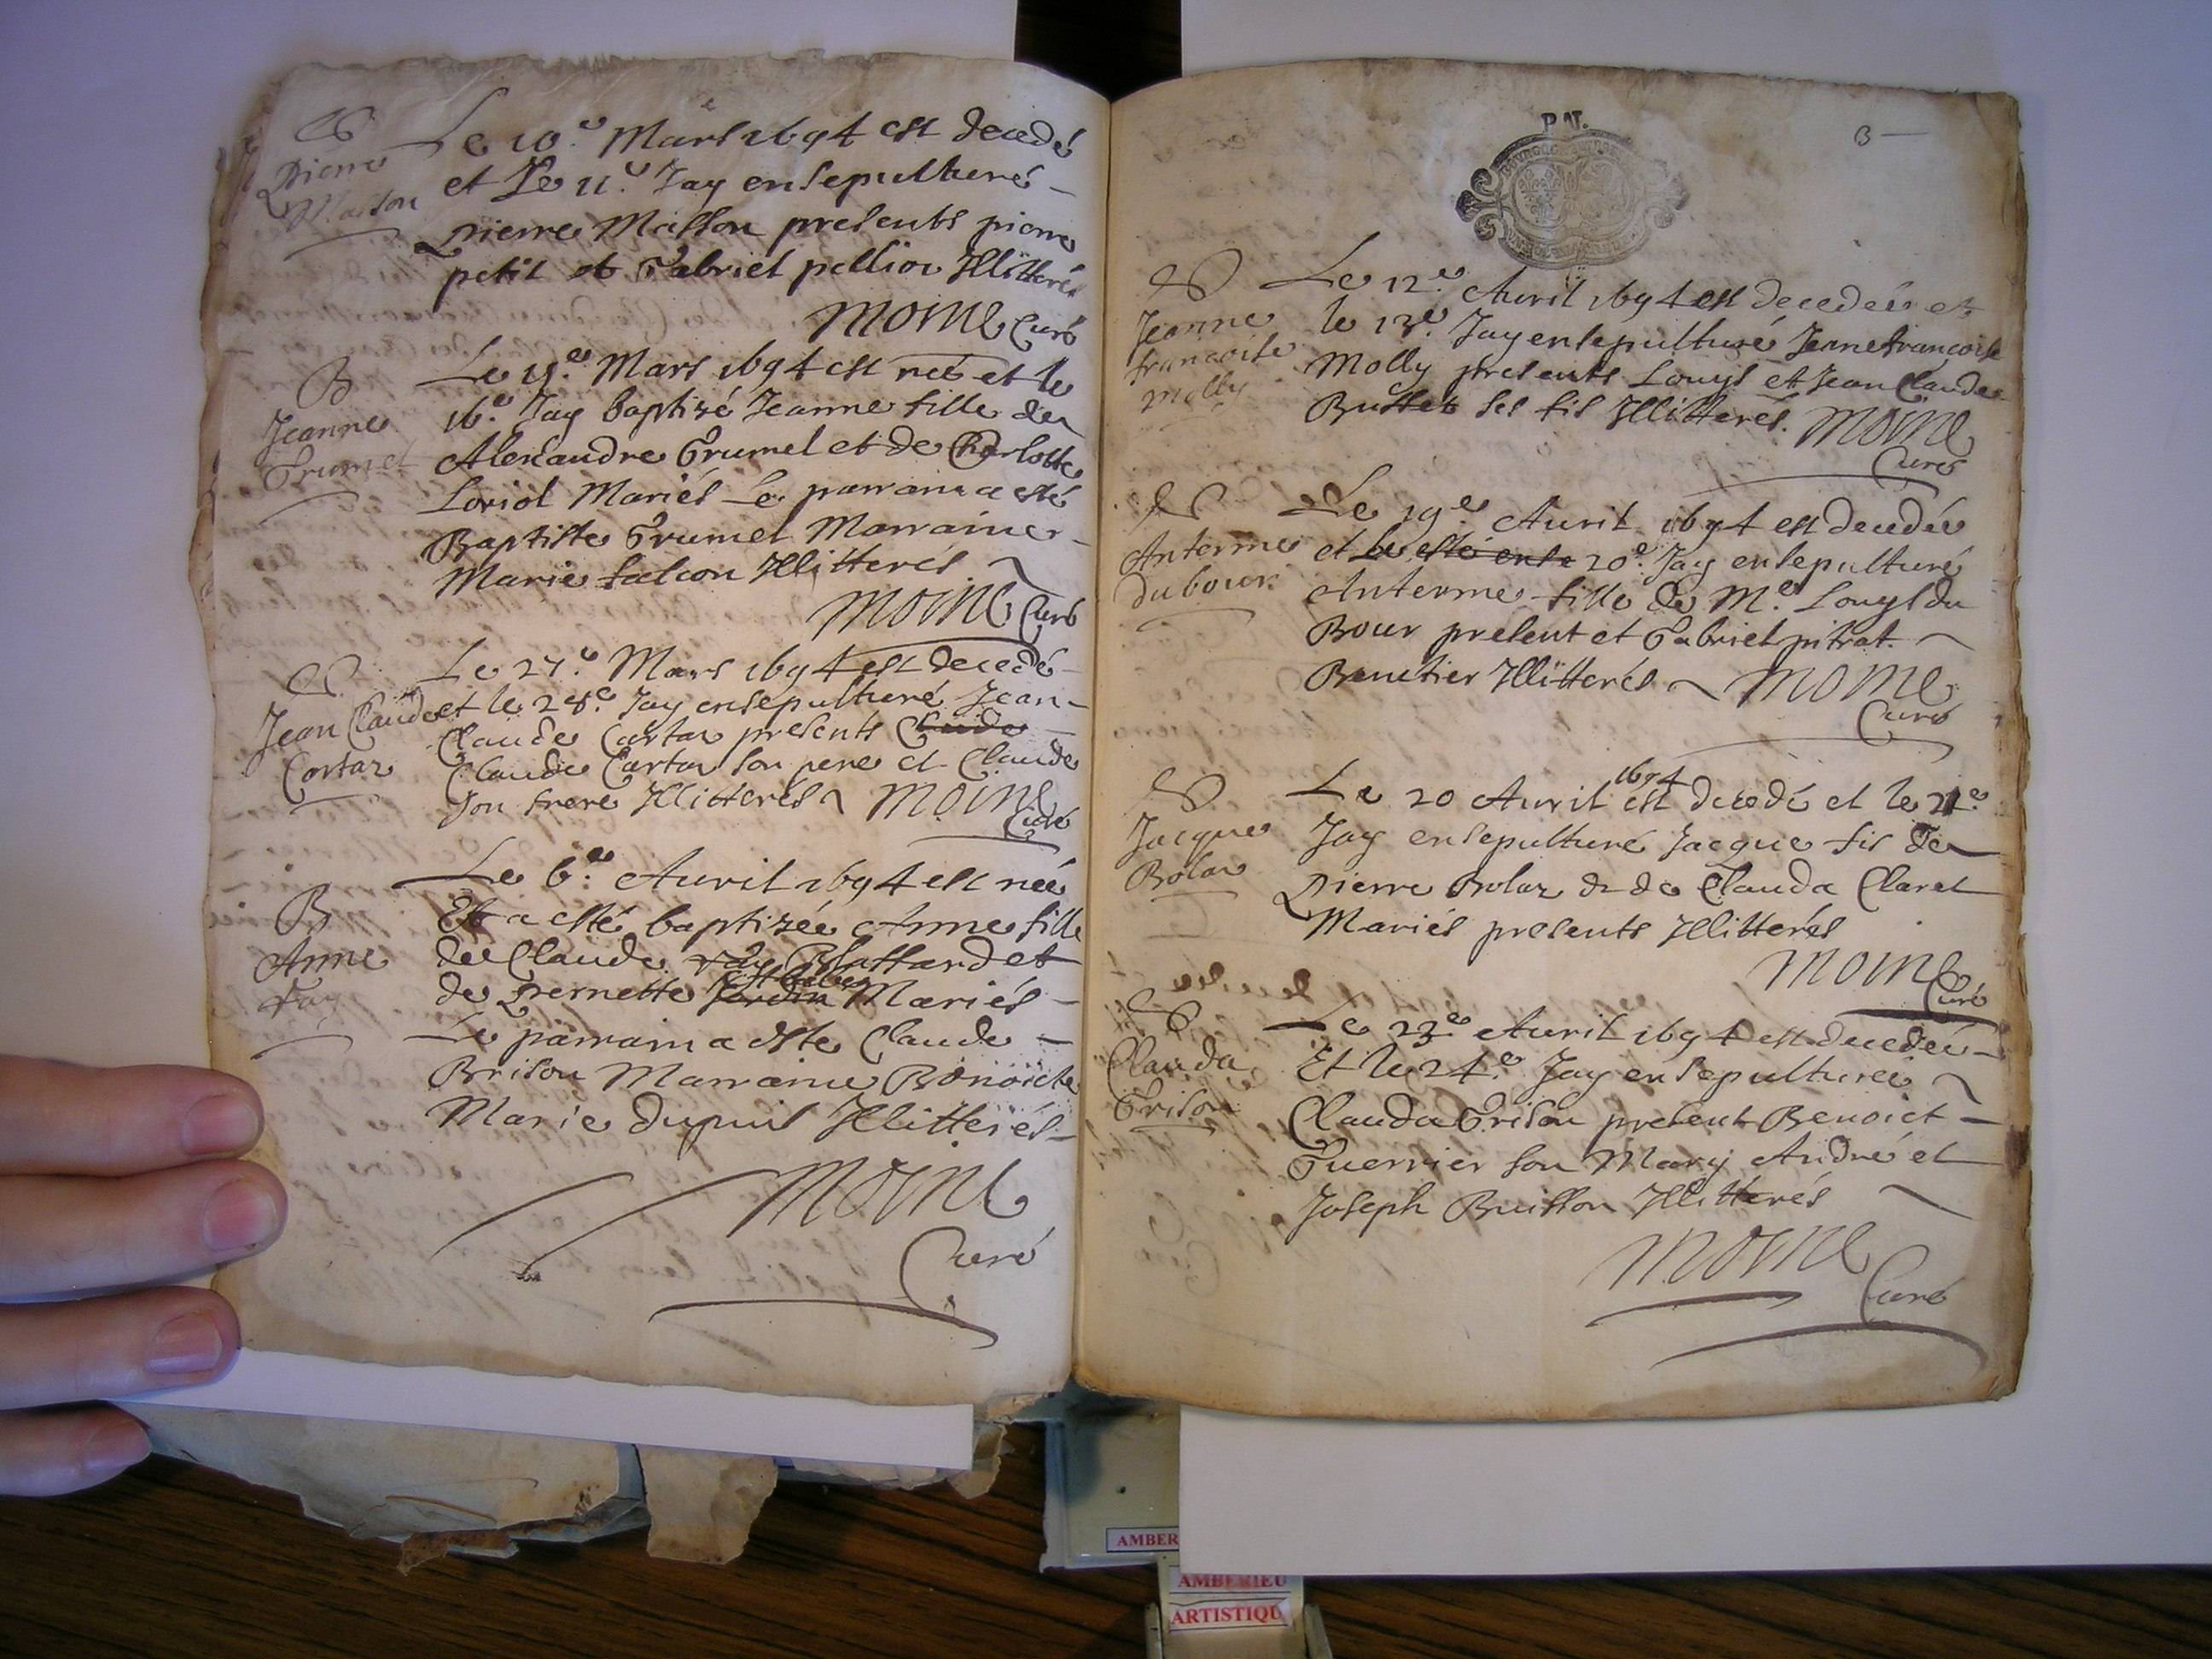 S
Pierre
Masson
Le 10.e Mars 1694 est decedé
et Le 11.e Jay ensepulturé
pierre Masson presents pierre
petit et Gabriel pellion Illitterés
Moine Curé
B
Jeanne
Grumel
Le 15.e Mars 1694 est née et le
16.e Jay baptizé Jeanne fille de
Alexandre Grumel et de Charlotte
Loriol Mariés Le parrain a esté
Baptiste Grumel Marraine
Marie falcon Illitterés
Moine Curé
S
Jean Claude
Cortar
Le 27.e Mars 1694 est decedé
et le 28.e Jay ensepulturé Jean
Claude Cartar presents Claude
Claude Cartar son pere et Claude
son frere Illitterés Moine
Curé
B
Anne
Le 6.e Avril 1694 est née
Et a esté baptizée Anne fille
de Claude Blattard et
de Pernette Mariés
Le parrain a este Claude
Brison Marraine Benoicte
Marie Dupuis Illitterés
Moine
Curé
3
S
Jeanne
francoise
Molly
Le 12.e Avril 1694 est decedée et
le 13.e Jay ensepulturé Jenne francoise
Molly presents Louys et Jean Claude
Buffet ses fils Illitterés. Moine
Curé
S
Anterme
du bour
Le 19.e Avril 1694 est decedée
et le esté ense 20.e Jay ensepulturé
Anterme fille de M.e Louys du
Bour present et Gabriel pitrat
Illitterés Moine
Curé
S
Jacque
Bolar
1694
Le 20 Avril est decedé et le 21.e
Jay ensepulturé Jacque fis de
Pierre Bolar & de Clauda Claret
Mariés presents Illitterés
Moine
Curé
S
Clauda
Grison
Le 23.e Avril 1694 est decedée
Et le 24.e Jay ensepulturée
Clauda Grison present Benoict
Guerrier son Mary André et
Joseph Buisson Illitterés
Moine
Curé
AMBER
AMBERIEU
ARTISTIQU